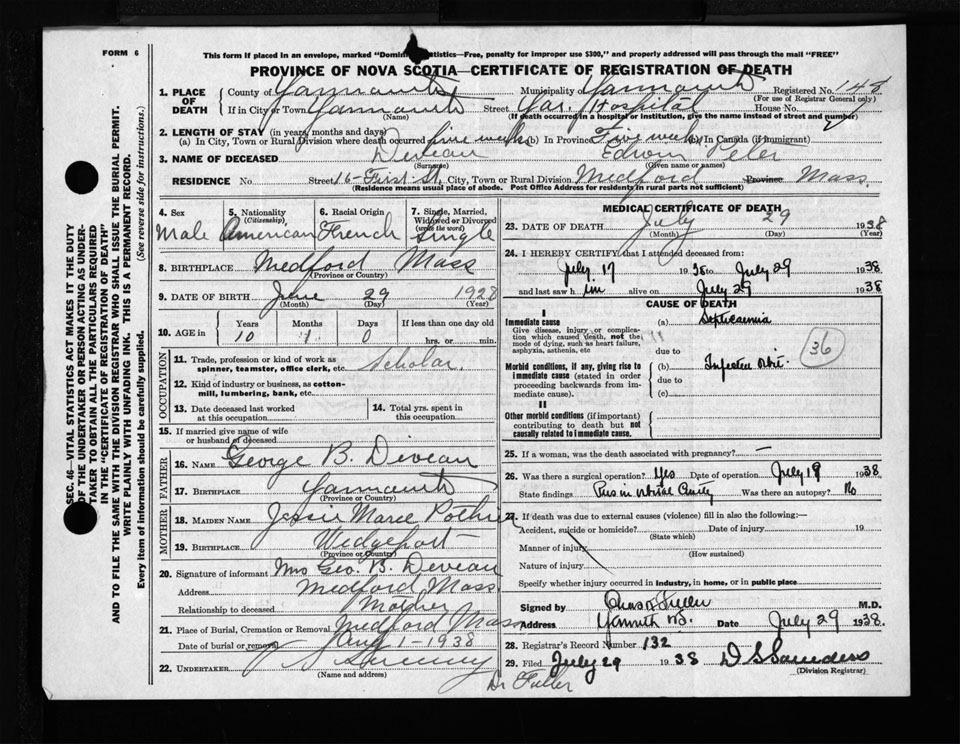 FORM 6
This form if placed in an envelope, marked "Domin tistics—Free, penalty for improper use $300," and properly addressed will pass through the mail "FREE"
PROVINCE OF NOVA SCOTIA—CERTIFICATE OF REGISTRATION OF DEATH
1. PLACE OF DEATH County of Yarmouth Municipality Yarmouth Registered No. 148
(For use of Registrar General only)
If in City or Town Yarmouth Street Yar. Hospital House No.
(Name) (If death occurred in a hospital or institution, give the name instead of street and number)
2. LENGTH OF STAY (in years, months and days)
(a) In City, Town or Rural Division where death occurred five weeks (b) In Province Five weeks (c) In Canada (if immigrant)
3. NAME OF DECEASED Deveau Edwin Peter
(Surname) (Given name or names)
RESIDENCE No. Street 16-First St. City, Town or Rural Division Medford Province Mass.
(Residence means usual place of abode. Post Office Address for residents in rural parts not sufficient)
4. Sex Male
5. Nationality (Citizenship) American
6. Racial Origin French
7. Single, Married, Widowed or Divorced (write the word) Single
8. BIRTHPLACE Medford Mass
(Province or Country)
9. DATE OF BIRTH June 29 1928
(Month) (Day) (Year)
10. AGE in Years Months Days If less than one day
10 1 0 hrs. or min.
OCCUPATION
11. Trade, profession or kind of work as spinner, teamster, office clerk, etc. Scholar.
12. Kind of industry or business, as cotton-mill, lumbering, bank, etc.
13. Date deceased last worked at this occupation
14. Total yrs. spent in this occupation
15. If married give name of wife or husband of deceased
FATHER
16. NAME George B. Deveau
17. BIRTHPLACE Yarmouth
(Province or Country)
MOTHER
18. MAIDEN NAME Jessie Maree Pothier
19. BIRTHPLACE Wedgeport
(Province or Country)
20. Signature of informant Mrs Geo. B. Deveau
Address Medford Mass.
Relationship to deceased Mother
21. Place of Burial, Cremation or Removal Medford Mass
Date of burial or removal Aug 1-1938
22. UNDERTAKER
(Name and address)
Dr Fuller
MEDICAL CERTIFICATE OF DEATH
23. DATE OF DEATH July 29 1938
(Month) (Day) (Year)
24. I HEREBY CERTIFY that I attended deceased from:
July 17 1938 to July 29 1938
and last saw him alive on July 29 1938
CAUSE OF DEATH
I
Immediate cause (a) Septicaemia
Give disease, injury or complication which caused death, not the mode of dying, such as heart failure, asphyxia, asthenia, etc
due to
36
Morbid conditions, if any, giving rise to immediate cause (stated in order proceeding backwards from immediate cause).
(b) Infected Orbit.
due to
(c)
II
Other morbid conditions (if important) contributing to death but not causally related to immediate cause.
25. If a woman, was the death associated with pregnancy? —
26. Was there a surgical operation? Yes Date of operation July 19 1938
State findings Pus in orbital Cavity Was there an autopsy? No
27. If death was due to external causes (violence) fill in also the following:—
Accident, suicide or homicide? Date of injury 19
(State which)
Manner of injury
(How sustained)
Nature of injury
Specify whether injury occurred in industry, in home, or in public place
Signed by Fuller M.D.
Address Yarmouth N.S. Date July 29 1938.
28. Registrar's Record Number 132
29. Filed July 29 1938 D S Saunders
(Division Registrar)
SEC. 46—VITAL STATISTICS ACT MAKES IT THE DUTY
OF THE UNDERTAKER OR PERSON ACTING AS UNDER-
TAKER TO OBTAIN ALL THE PARTICULARS REQUIRED
IN THE "CERTIFICATE OF REGISTRATION OF DEATH"
AND TO FILE THE SAME WITH THE DIVISION REGISTRAR WHO SHALL ISSUE THE BURIAL PERMIT.
WRITE PLAINLY WITH UNFADING INK. THIS IS A PERMANENT RECORD.
Every item of information should be carefully supplied. (See reverse side for instructions.)